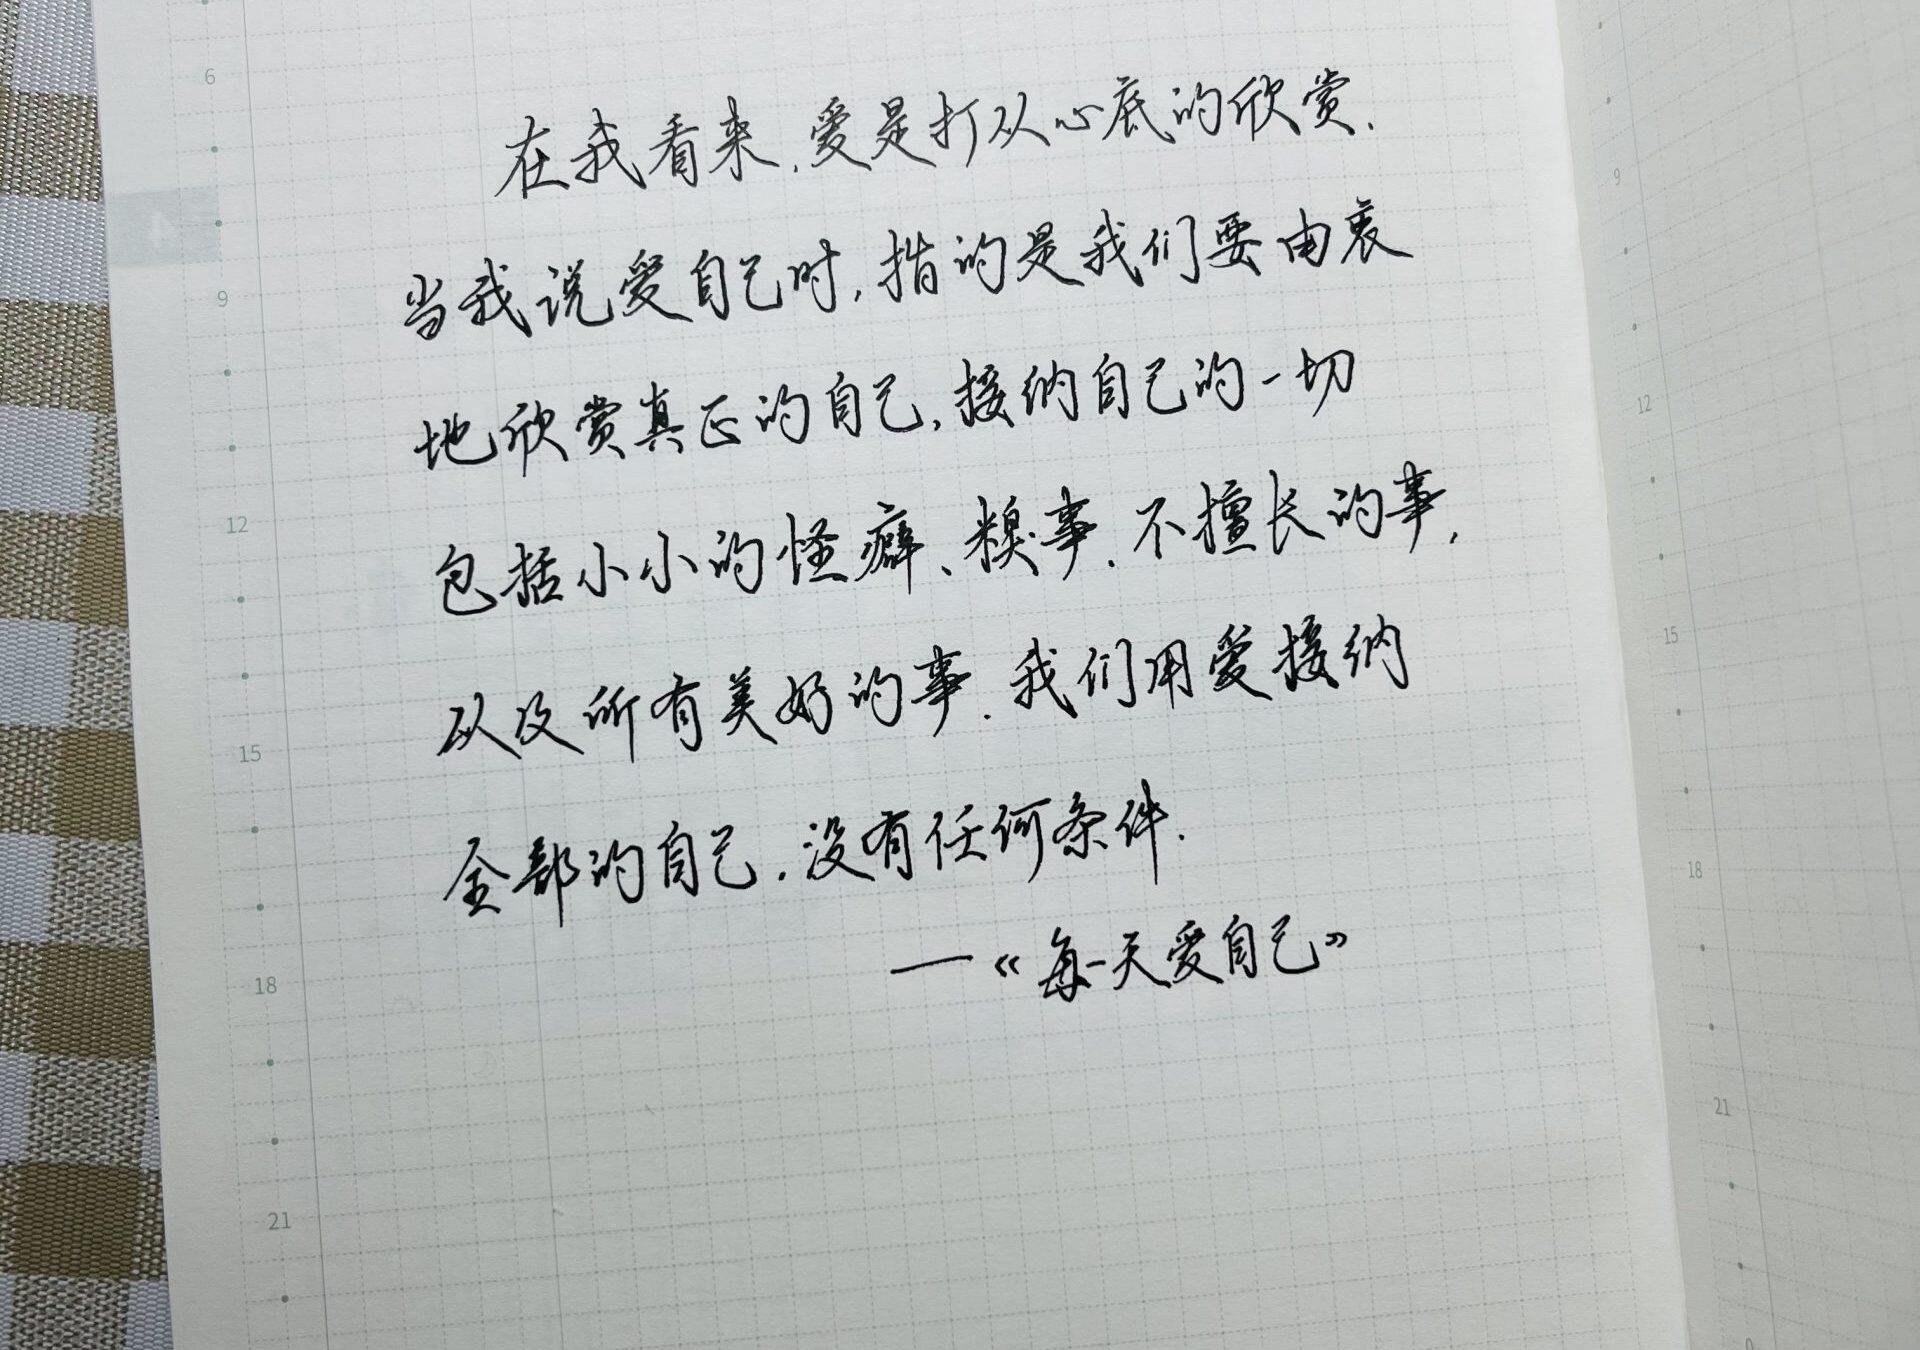 6
在我看来，爱是打从心底的欣赏.
当我说爱自己时，指的是我们要由衷
9
地欣赏真正的自己，接纳自己的一切
包括小小的怪癖、糗事、不擅长的事，
12
以及所有美好的事. 我们用爱接纳
15
全部的自己，没有任何条件.
——《每一天爱自己》
18
21
9
12
15
18
21